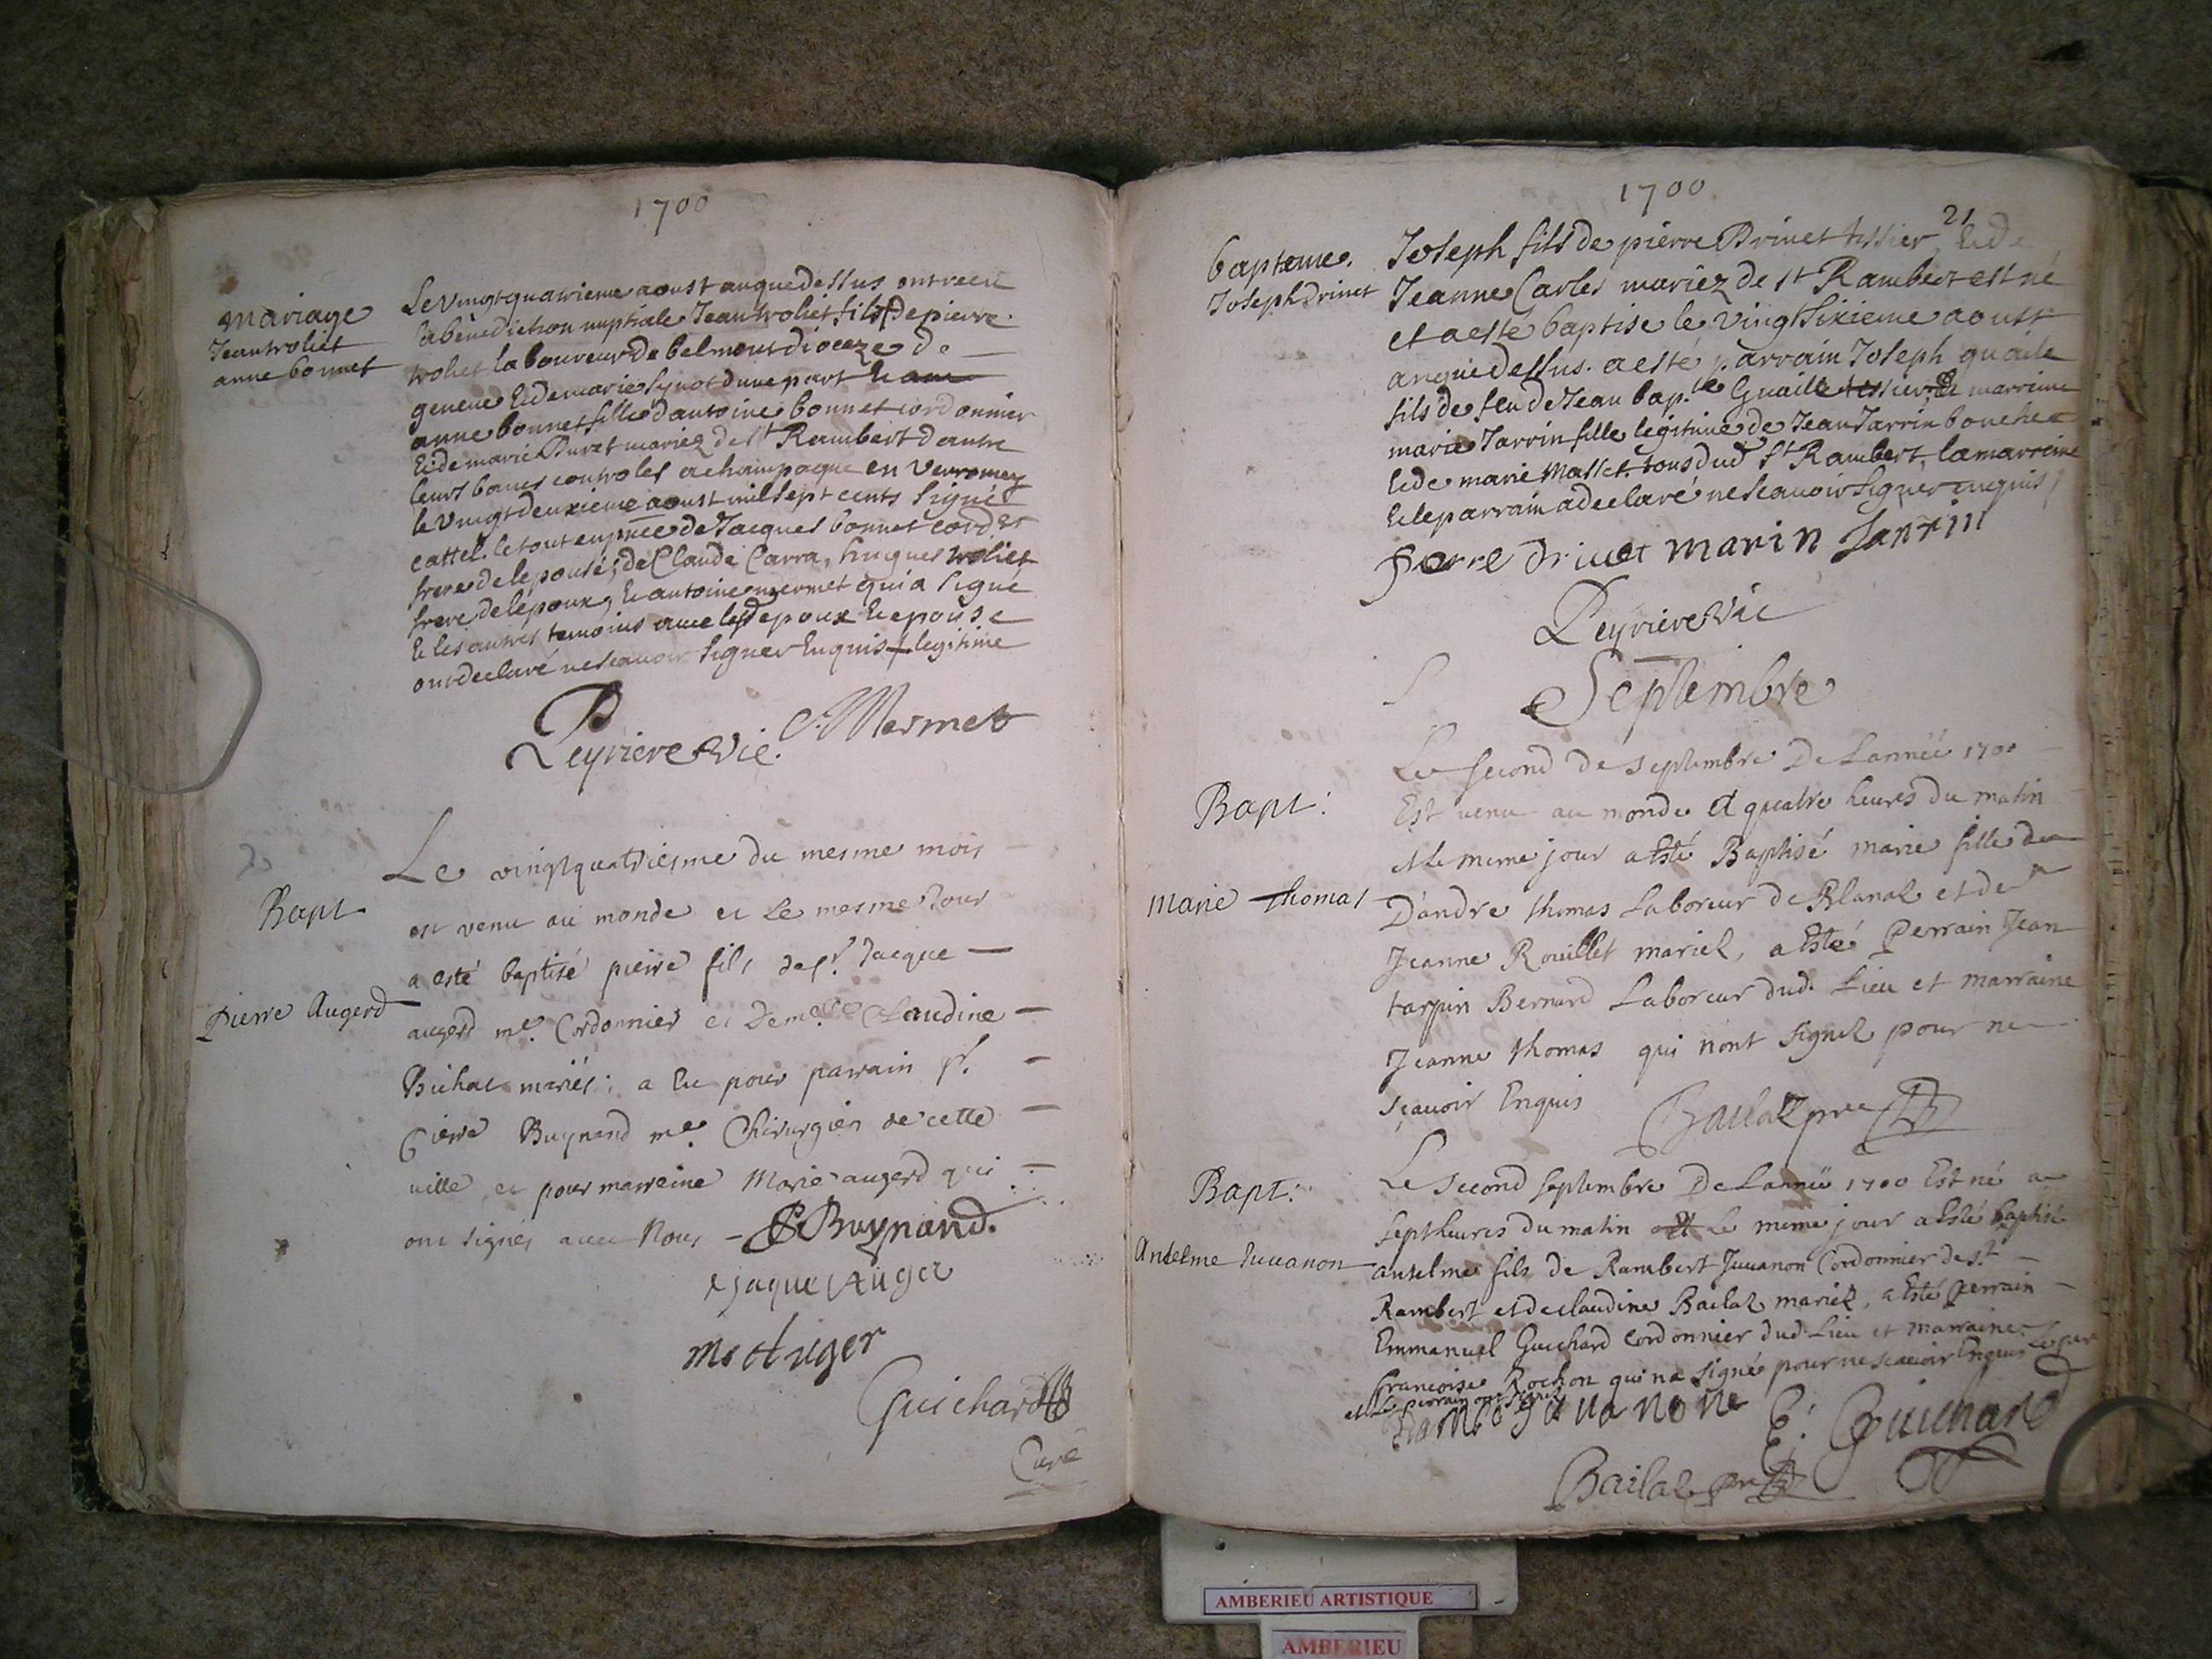 1700
mariage
Jean troliet
anne bonnet
Le vingt quatrieme aoust an que dessus ont receu
la benediction nuptiale Jean troliet fils + de pierre
troliet laboureur de belmont dioceze de
geneve Et de marie d'une part
anne bonnet fille d'antoine bonnet cordonnier
Et de marie Buret mariez de st Rambert d'autre
leurs bancs controles a champagne en verromey
le vingt deuxieme aoust mil sept cents signé
cattel. le tout en pnce de Jacques bonnet cord.er
frere de lepouse, de Claude Carra, hugues troliet
frere de lepoux, Et antoine mermet qui a signé
Et les autres temoins avec lesd epoux Et epouse
ont declaré ne scavoir signer Enquis + legitime
Peyriere vic. A. Mermet
Bapt
Pierre Augerd
Le vingtquatriesme du mesme mois
est venu au monde et le mesme Jour
a esté baptisé pierre fils de sr. Jacque
augerd me. Cordonnier et Demelle Claudine
Bichat mariés; a Eu pour parrain sr.
Pierre Buynand me. Chirurgien de cette
ville et pour marreine Marie augerd qui
ont signés avec Nous - P Buynand.
Jaque Auger
M Auger
Guichard
Curé
1700
21
bapteme.
Joseph Drivet
Joseph fils de pierre Drivet tissier Et de
Jeanne Carler mariez de st Rambert est né
et a esté baptise le vingt sixieme aoust
an que dessus. a esté parrain Joseph guaile
fils de feu de Jean bap.te Guaille tessier Et marrine
marie Jarrin fille legitime de Jean Jarrin boucher
Et de marie Masset tous dud st Rambert, la marreine
Et le parrain a declaré ne scavoir signer enquis
pierre drivet marin Jarrin
Peyriere vic
Septembre
Bapt:
Marie Thomas
Le second de septembre De Lannéé 1700
Est venu au monde A quatre heures du matin
et le meme jour a Esté Baptisé marie fille de
D'andre thomas Laboreur de Blanaz et de
Jeanne Rouillet mariez, a Esté Perrain Jean
tarpin Bernard Laboreur dud. Lieu et marraine
Jeanne thomas qui n'ont signez pour ne
sçavoir Enquis Bailaz pre
Bapt:
Anselme Juvanon
Le second septembre De Lannéé 1700 Est né a
sept heures du matin et le meme jour a Esté baptisé
anselme fils de Rambert Juvanon Cordonnier de st.
Rambert et de claudine Bailaz mariez, a Esté perrain
Emmanuel Guichard cordonnier dud. Lieu et marraine
francoise Rochon qui na signé pour ne scavoir Enquis Le per
et Le perrain ont signez
Rambe Juvanone E: Guichard
Bailaz pre
AMBERIEU ARTISTIQUE
AMBERIEU